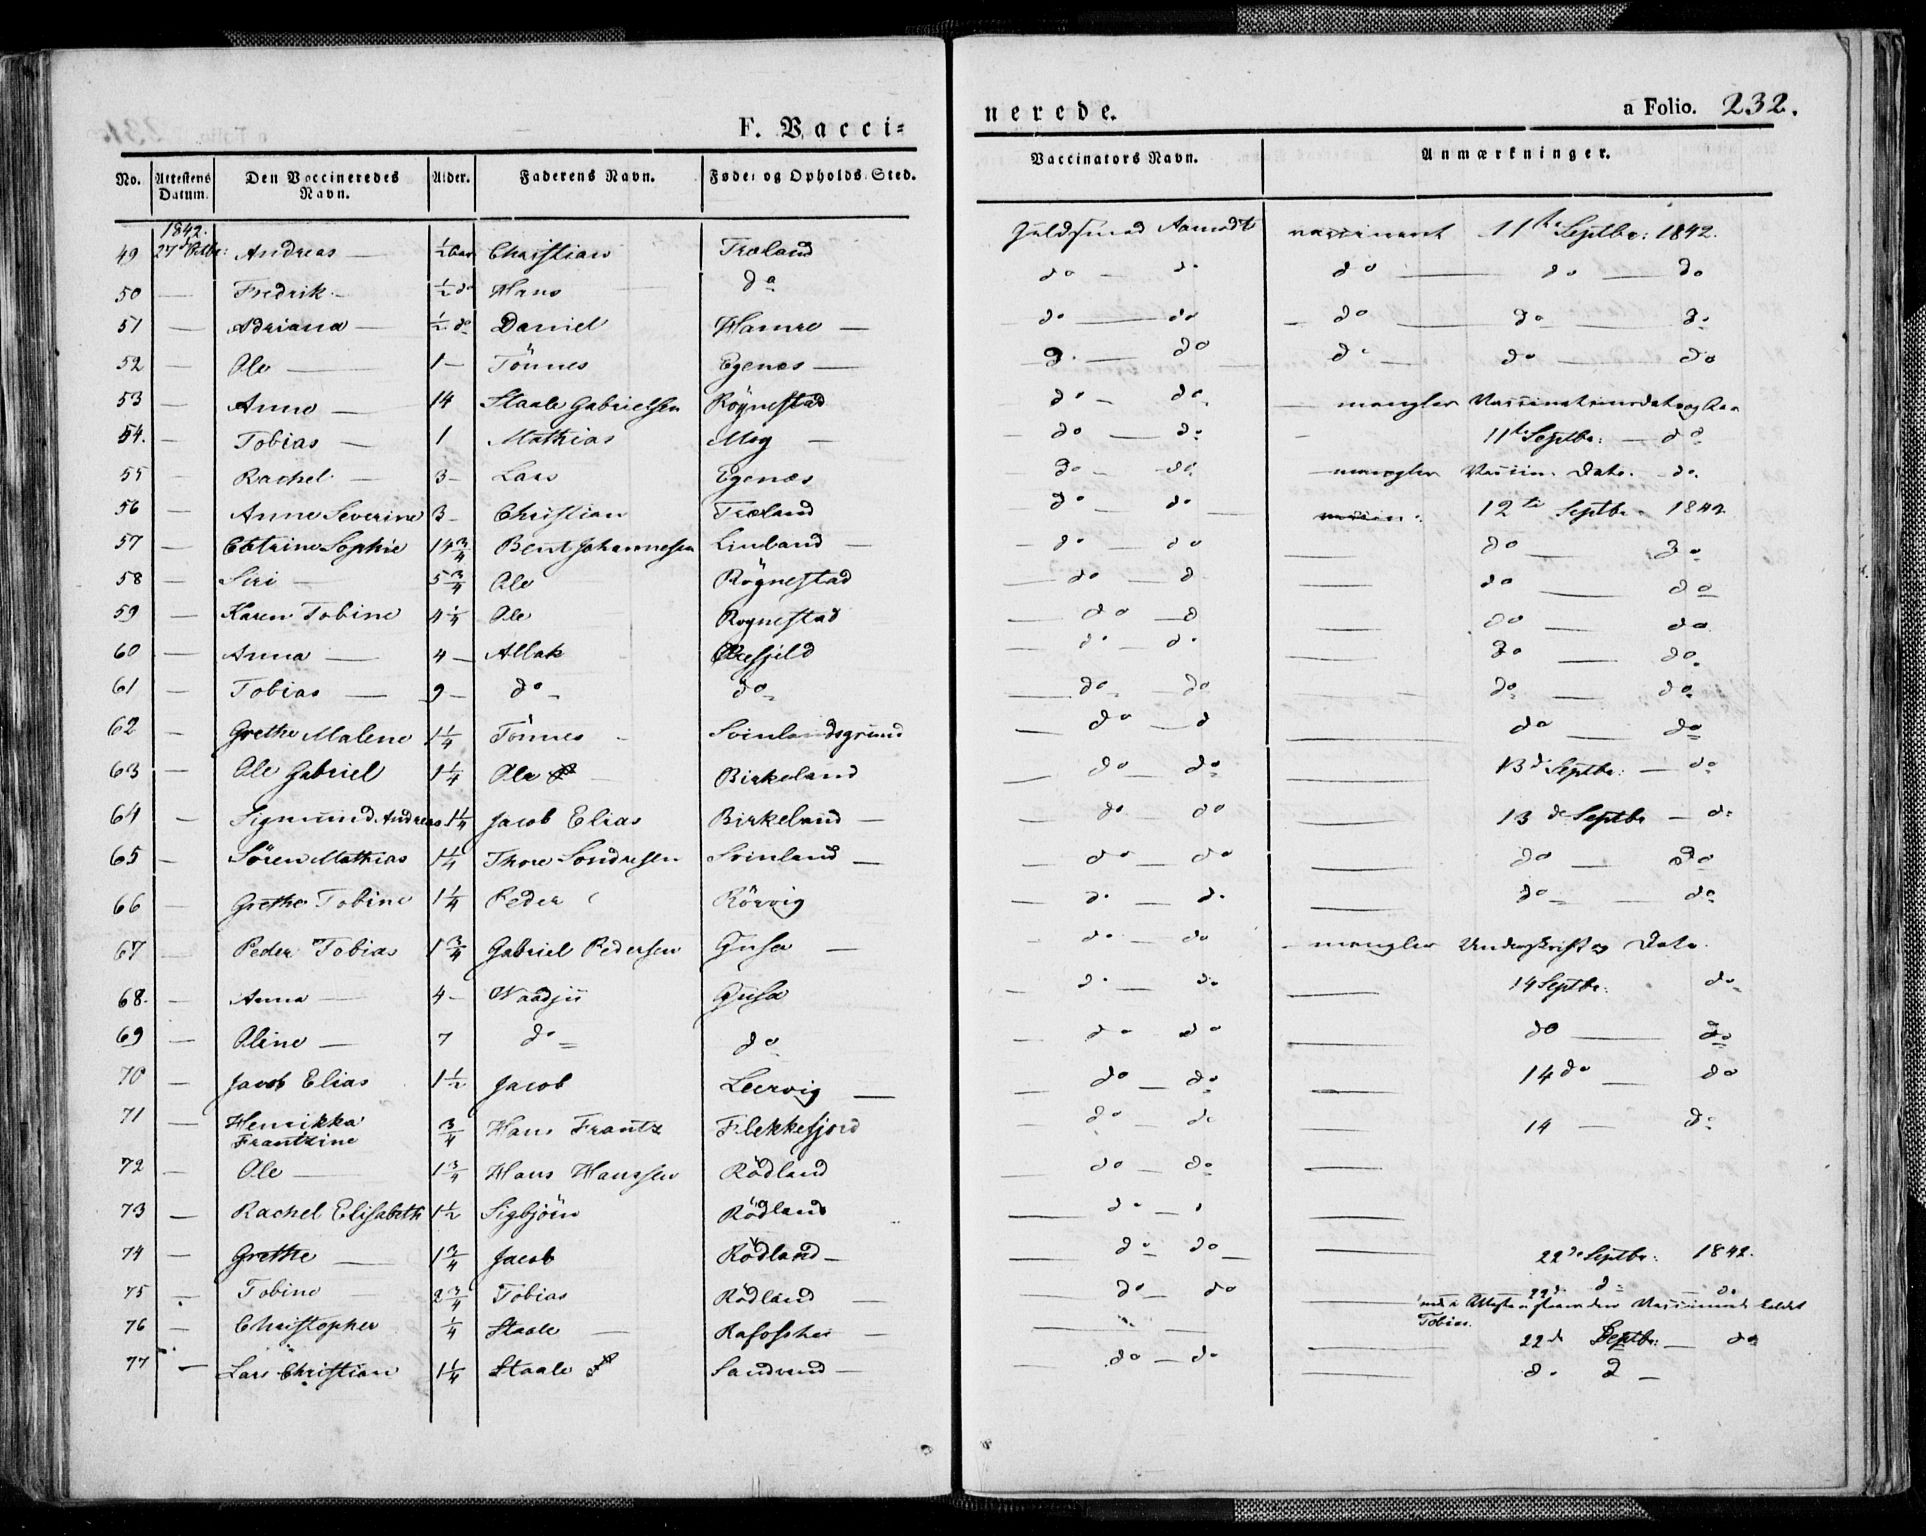 F. Vacci=
nerede.
a Folio. 232.
No. Attestens Datum. Den Vaccineredes Navn. Alder. Faderens Navn. Føde- og Opholds-Sted. Vaccinators Navn. Anmærkninger.
1842.
49 27 Andreas — ½ Aar Christian Træland Guldsmed Aamodt vaccineret 11te Septbr: 1842.
50 — Fredrik — ½ do Hans do do — do do — do — do
51 — Adriana — ½ do Daniel Hamre — do — do — do — do — do
52 — Ole — 1 — Tönnes Egenæs — do — do do — do — do
53 — Anne — 14 Staale Gabrielsen Rögnestad do — do — mangler Vaccinationsdato og
54. — Tobias — 1 Mathias Moy — do — do — 11te Septbr: — do
55 — Rachel — 3 — Lars Egenæs do — do — mangler Vaccin. Dato. — do
56 — Anne Severine 3 — Christian Træland do — do — 12te Septbr. 1842
57 — Catrine Sophie 14¾ Bent Johannesen Linland — do — do — do — do
58 — Siri — 5¾ Ole Rögnestad — do — d do — do
59 — Karen Tobine 4¼ Ole Rognestad — do — d — do — do
60 — Anna — 4 — Atlak do — do — do — do
61 — Tobias — 9 — do do — do — do — do — do
62 — Grethe Malene 1¼ Tönnes Svinlandsgrund — do — d — do — do
63 — Ole Gabriel 1¼ Ole Birkeland — do — do — 13de Septbr: — do
64 — Sigmund Andreas 1¼ Jacob Elias Birkeland — do do — 13de Septbr — do
65 — Sören Mathias 1¼ Thore Sondresen Svinland — do — do — do — do
66 Grethe Tobine 1¼ Peder Rörvig — do — do — do — do
67 — Peder Tobias 1¾ Gabriel Pedersen Gusa — do — do — mangler Underskrift og Dato.
68. — Anna — 4 — Gusa — do — do — 14 Septbr: do
69 — Oline — 7 do do — do — do — do — do
70 — Jacob Elias 1½ Jacob Leervig — do — do — 14 do — do
71 — Henrikka Frantzine ¾ Hans Frantz Flekkefjord — do — do — 14 — do
72 — Ole — 1¾ Hans Hanssen Rödland do — do —
73 — Rachel Elisabeth 1½ Sigbjörn Rödland — do — —
74 — Grethe — 1¾ Jacob Rödland — do do — — 22de Septbr: 1842.
75 — Tobine 2¾ Tobias Rödland — do — do — 22de do — do
Tobias.
76 — Christopher ¼ Staale — — — — 22de Septbr: — do
77 — Lars Christian 1¼ Staale Sandvand — do — do — do d —